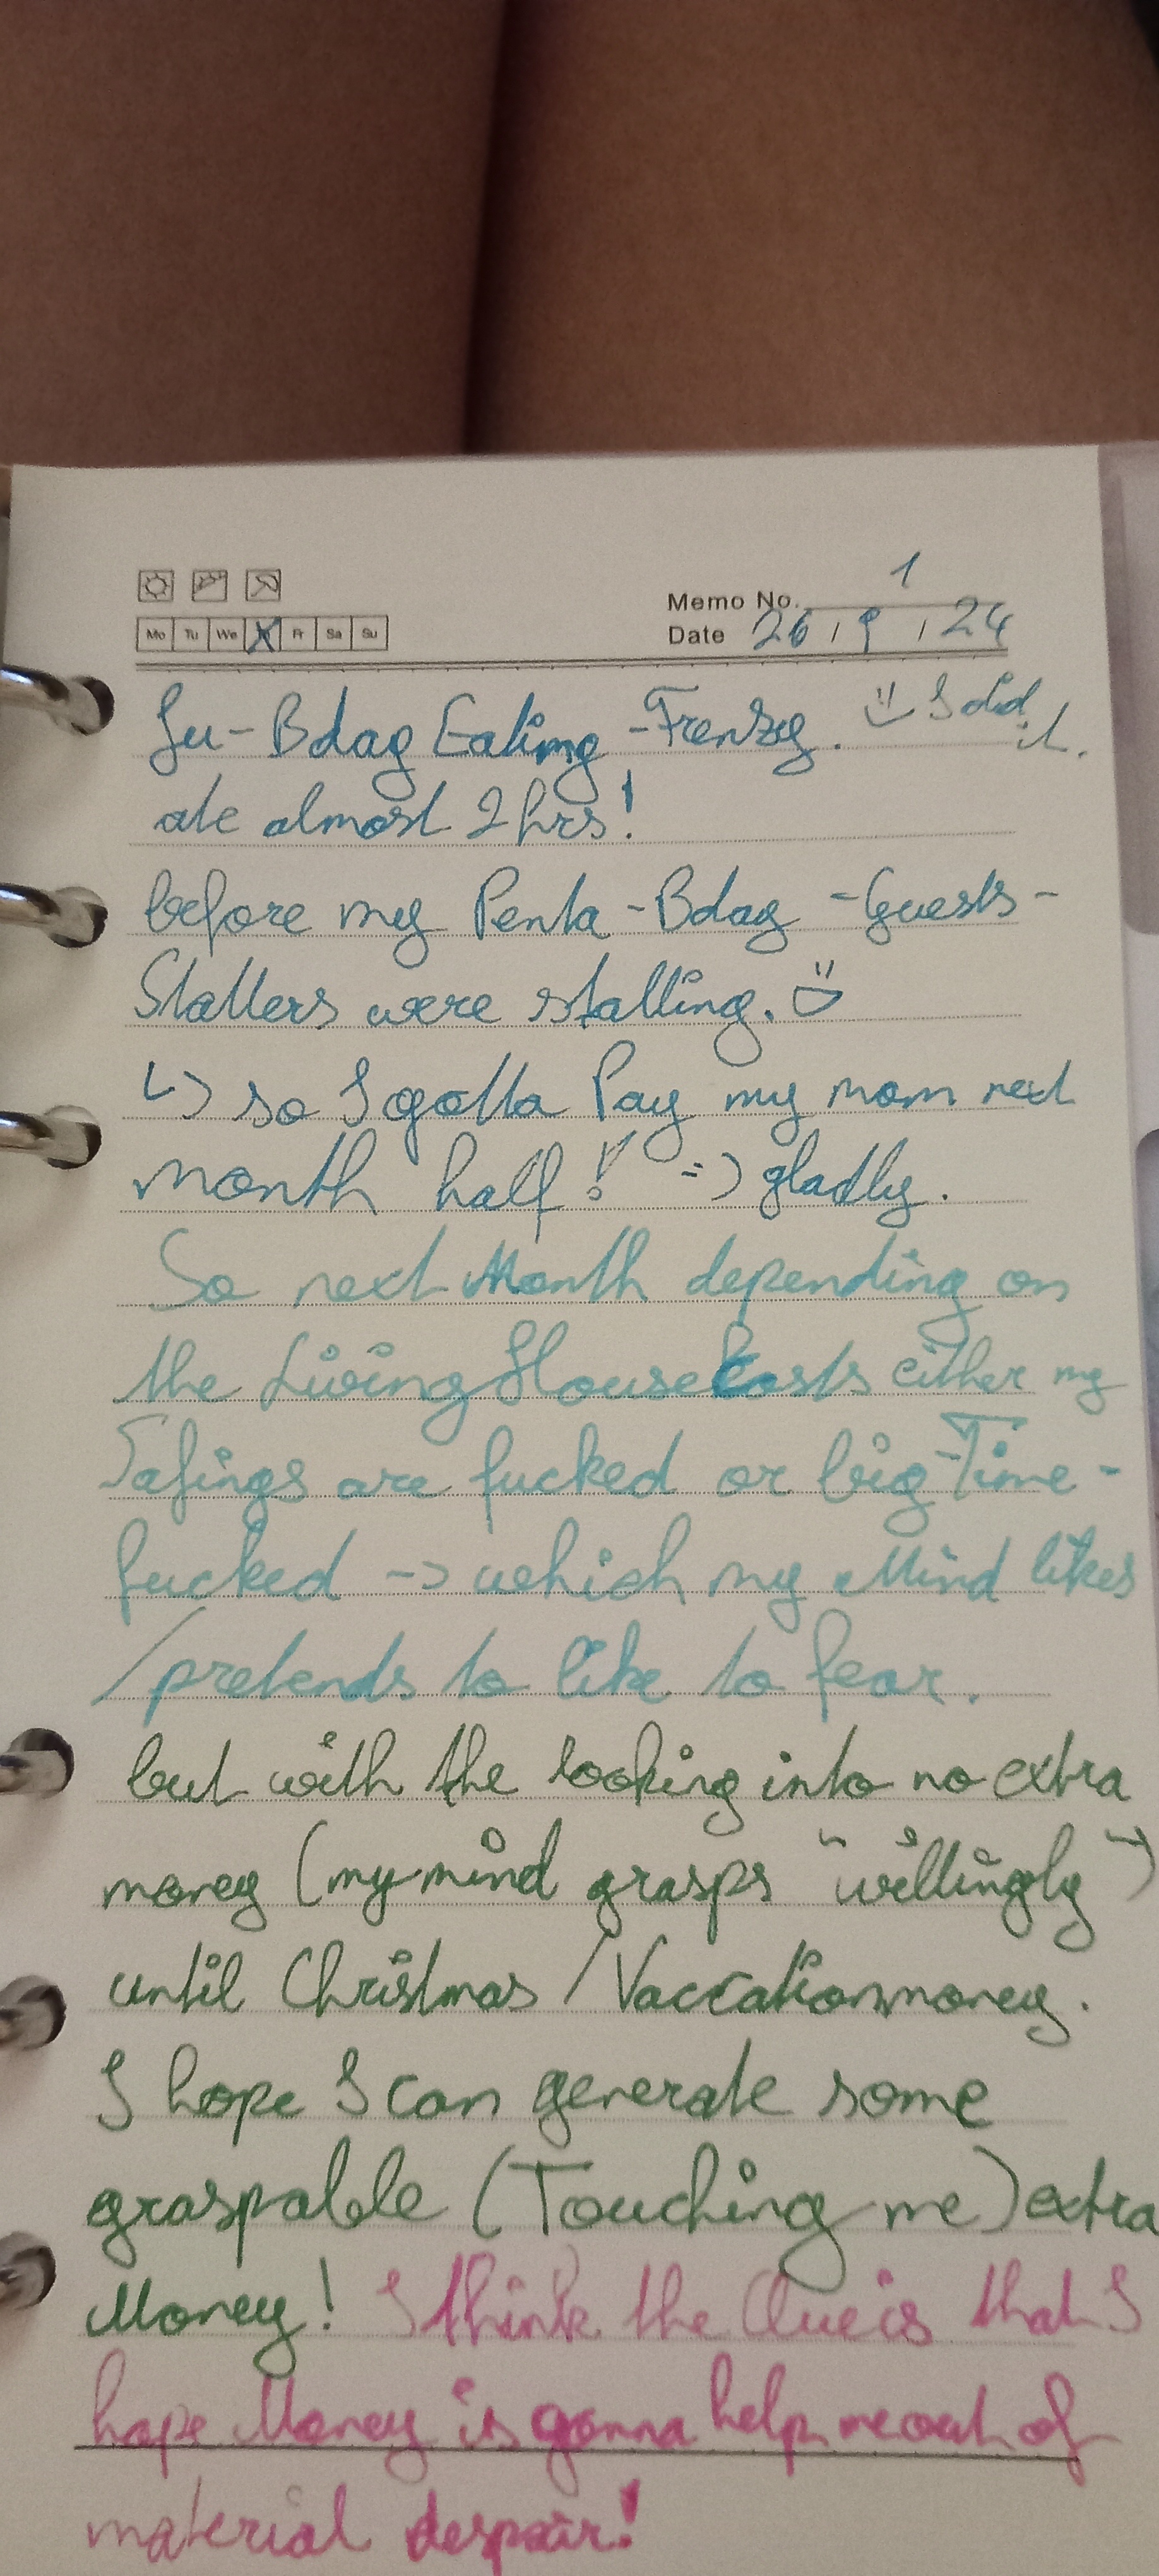 Memo No. 1
Mo Tu We X Fr Sa Su
Date 26 / 9 / 24
Su-Bday Eating-Frenzy. I did it.
ate almost 2 hrs!
before my Penta-Bday-Guests-
Stallers were stalling.
↳ so I gotta Pay my mom next
month half! => gladly.
So next Month depending on
the Living House Costs either my
Safings are fucked or big-Time-
fucked -> which my Mind likes
/pretends to like to fear.
but with the looking into no extra
money (my mind grasps "willingly")
until Christmas / Vaccationmoney.
I hope I can generate some
graspable (Touching me) extra
Money! I think the Clue is that I
hope Money is gonna help me out of
material despair!